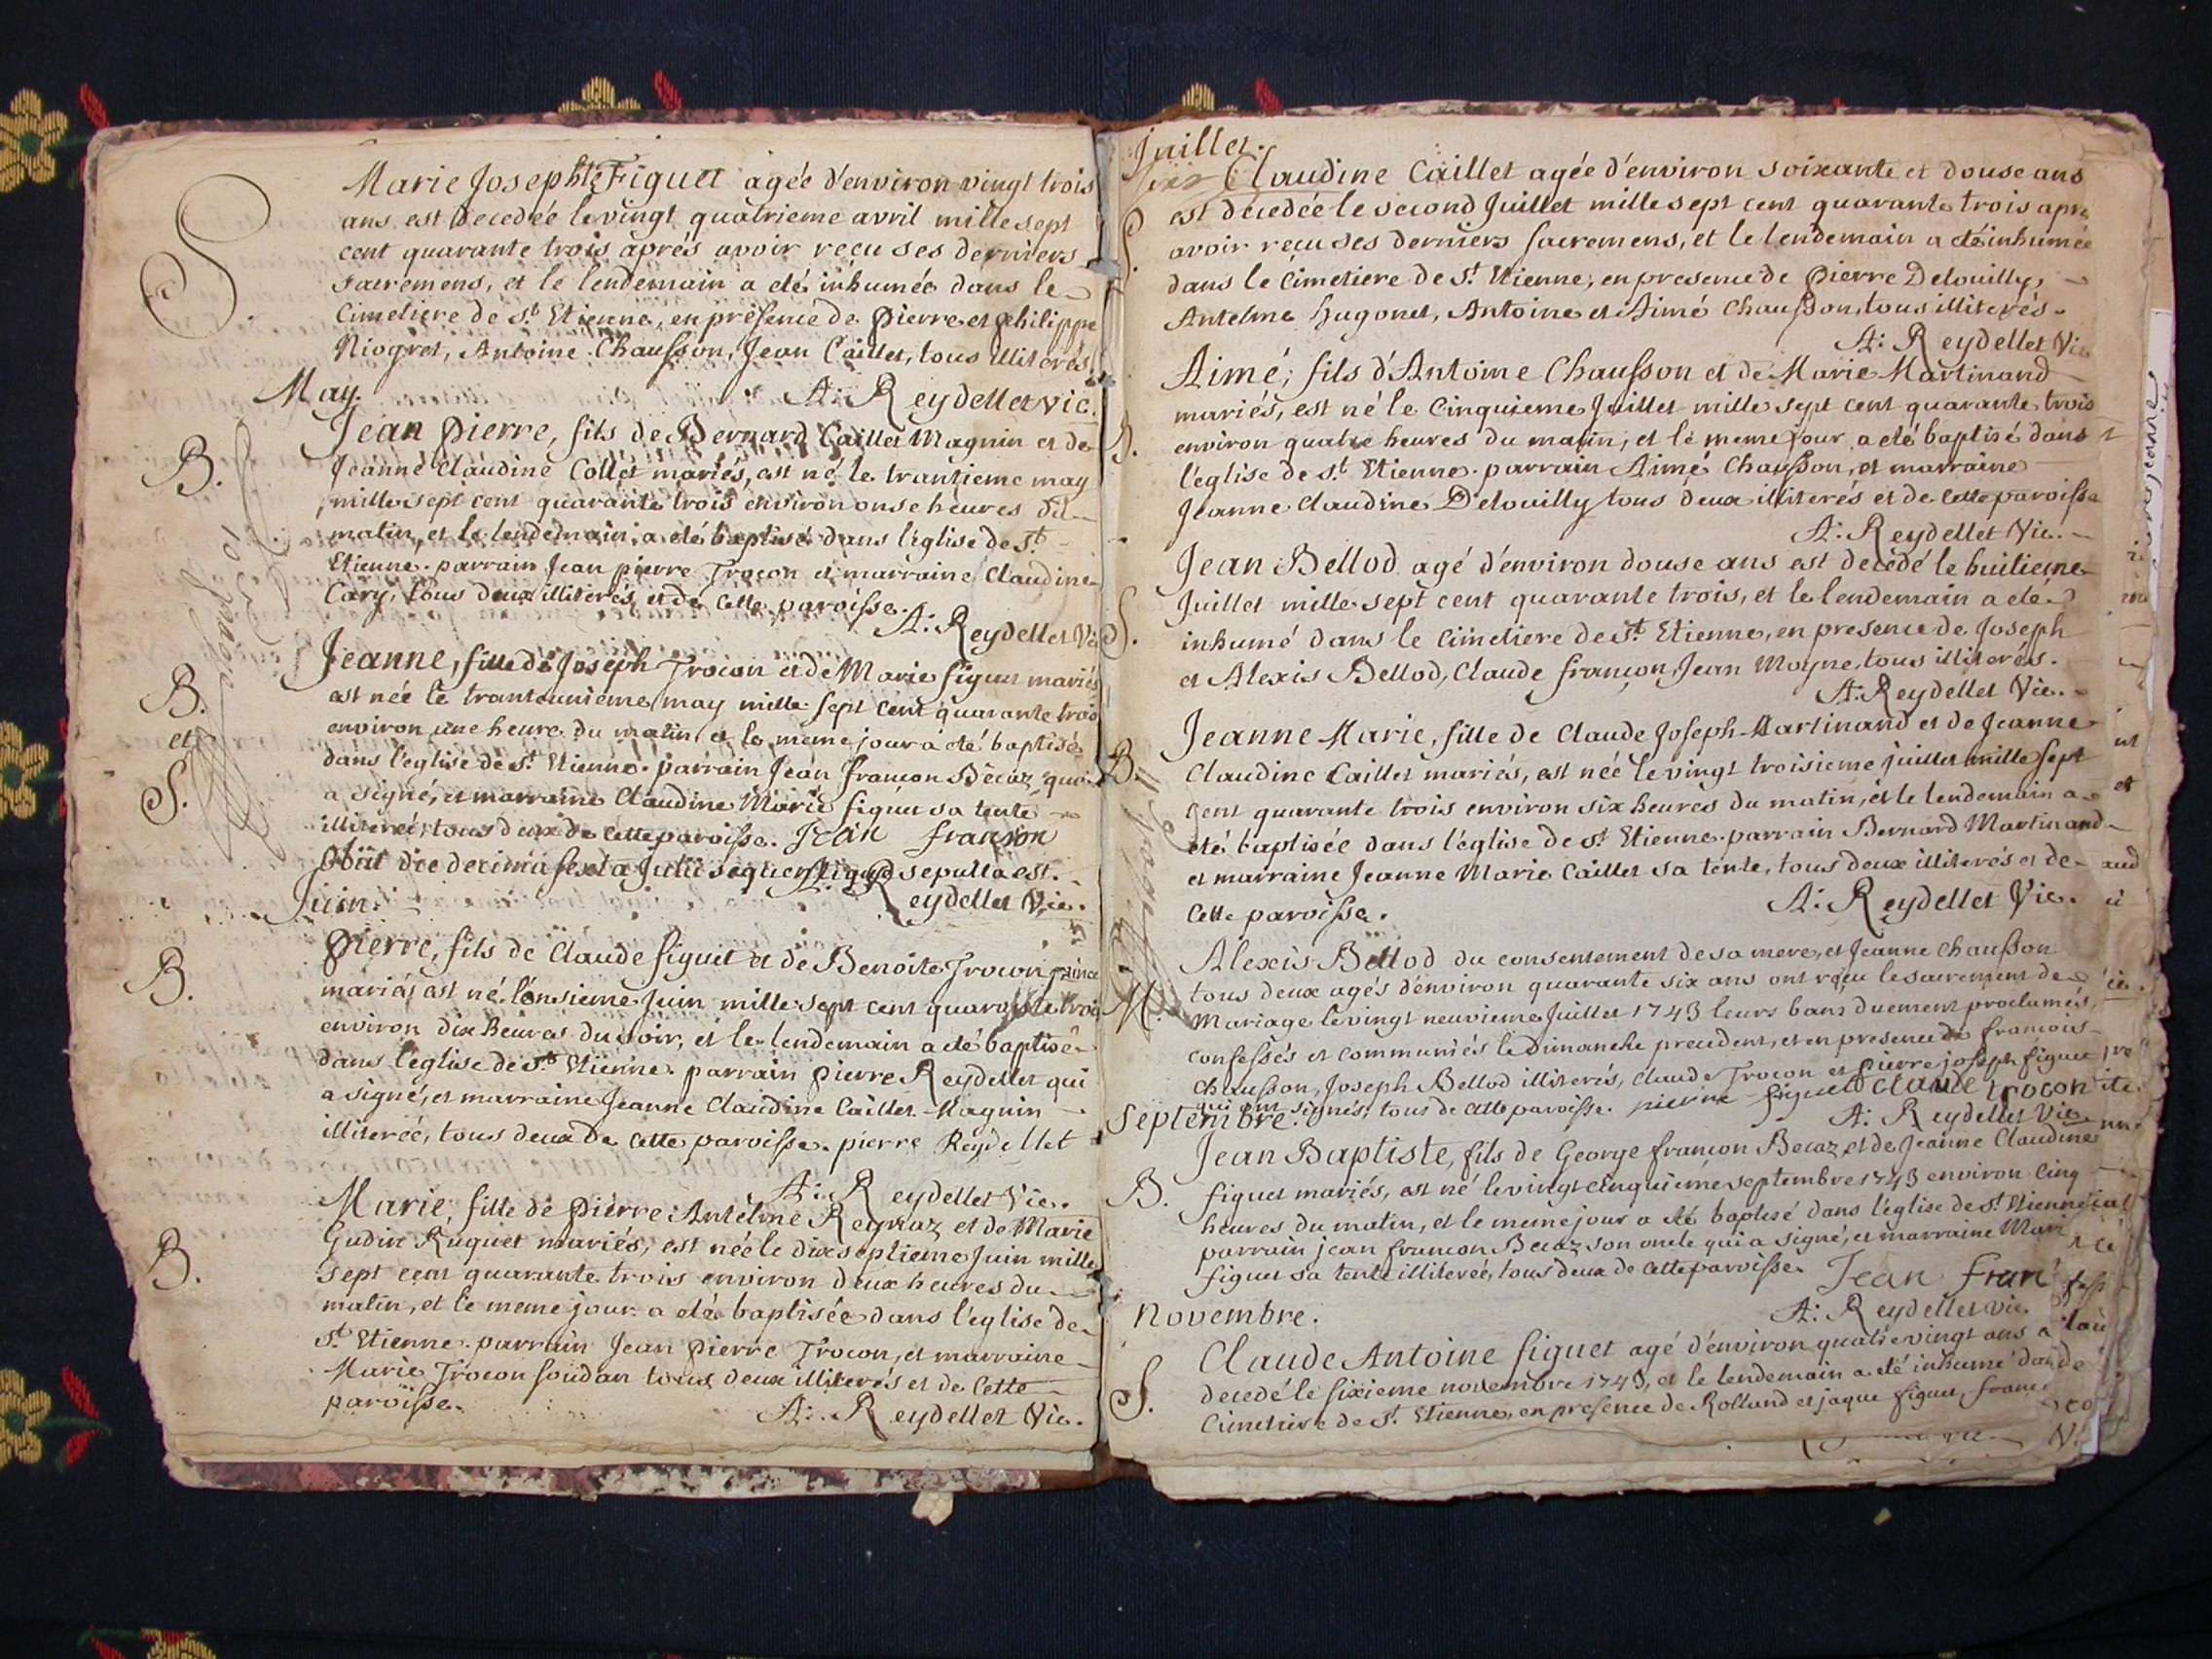 S.
Marie Josephte Figuet agée d'environ vingt trois
ans est decedée le vingt quatrieme avril mille sept
cent quarante trois aprés avoir reçu ses derniers
sacremens, et le lendemain a eté inhumée dans le
Cimetiere de St. Etienne, en présence de pierre et philippe
Niogret, Antoine Chausson, Jean Caillet, tous illiterés.
A: Reydellet vic.
May.
B.
Jean pierre, fils de Bernard Caillet Magnin et de
Jeanne Claudine Collet mariés, est né le trantieme may
mille sept cent quarante trois environ onse heures du
matin, et le lendemain a eté baptisé dans l'église de St.
Etienne. parrain Jean pierre Trocon et marraine Claudine
Cary, tous deux illiterés et de cette paroisse.
A: Reydellet Vic
B.
et
S.
Jeanne, fille de Joseph Trocon et de Marie figuet mariés
est née le trantounieme may mille sept cent quarante trois
environ une heure du matin et le meme jour a eté baptisée
dans l'église de St. Etienne. parrain Jean francon Becaz qui
a signé, et marraine Claudine Marie figuet sa tente
illiterée, tous deux de cette paroisse. Jean franson
Obiit die decima sexta Julii sequentique sepulta est.
A. Reydellet Vic.
Juin.
B.
pierre, fils de Claude figuet et de Benoite Trocon
mariés est né l'onsieme Juin mille sept cent quarante trois
environ dix heures du soir, et le lendemain a eté baptisé
dans l'église de St. Etienne. parrain pierre Reydellet qui
a signé, et marraine Jeanne Claudine Caillet Magnin
illiterée, tous deux de cette paroisse. pierre Reydellet
A: Reydellet Vic.
B.
Marie, fille de pierre Antelme Reyraz et de Marie
Gudin Ruguet mariés, est née le dix septieme Juin mille
sept cent quarante trois environ deux heures du
matin, et le meme jour a eté baptisée dans l'église de
St. Etienne. parrain Jean pierre Trocon, et marraine
Marie Trocon soudan tous deux illiterés et de cette
paroisse.
A: Reydellet Vic.
Juillet.
S.
Claudine Caillet agée d'environ soixante et douse ans
est decedée le second Juillet mille sept cent quarante trois apre
avoir reçu ses derniers sacremens, et le lendemain a eté inhumée
dans le cimetiere de St. Etienne, en presence de pierre Detouilly,
Antelme Hugonet, Antoine et Aimé Chausson, tous illiterés.
A: Reydellet Vic
B.
Aimé, fils d'Antoine Chausson et de Marie Martinand
mariés, est né le Cinquieme Juillet mille sept cent quarante trois
environ quatre heures du matin, et le meme jour a eté baptisé dans
l'église de St. Etienne. parrain Aimé Chausson, et marraine
Jeanne Claudine Detouilly tous deux illiterés et de cette paroisse
A: Reydellet Vic.
S.
Jean Bellod agé d'environ douse ans est decedé le huitieme
Juillet mille sept cent quarante trois, et le lendemain a eté
inhumé dans le cimetiere de St. Etienne, en presence de Joseph
et Alexis Bellod, Claude francon, Jean Moyne, tous illiterés.
A: Reydellet Vic.
B.
Jeanne Marie, fille de Claude Joseph Martinand et de Jeanne
Claudine Caillet mariés, est née le vingt troisieme juillet mille sept
cent quarante trois environ six heures du matin, et le lendemain a
eté baptisée dans l'église de St. Etienne. parrain Bernard Martinand
et marraine Jeanne Marie Caillet sa tente, tous deux illiterés et de
cette paroisse.
A: Reydellet Vic.
M.
Alexis Bellod du consentement de sa mere, et Jeanne Chausson
tous deux agés d'environ quarante six ans ont reçu le sacrement de
Mariage le vingt neuvieme Juillet 1743 leurs bans duement proclamés,
confessés et communiés le Dimanche precedent, et en presence de francois
Chausson, Joseph Bellod illiterés, Claude Trocon et pierre joseph figuet
qui ont signés, tous de cette paroisse. pierre figuet claude trocon
A: Reydellet Vic
Septembre.
B.
Jean Baptiste, fils de George francon Becaz et de Jeanne Claudine
figuet mariés, est né le vingt cinquieme septembre 1743 environ cinq
heures du matin, et le meme jour a eté baptisé dans l'église de St. Etienne
parrain jean francon Becaz son oncle qui a signé, et marraine Mari
figuet sa tente illiterée, tous deux de cette paroisse. Jean fran
A: Reydellet vic.
Novembre.
S.
Claude Antoine figuet agé d'environ quatre vingt ans a
decedé le sixieme novembre 1743, et le lendemain a eté inhumé dan
Cimetiere de St. Etienne, en presence de Rolland et jaque figuet, franc